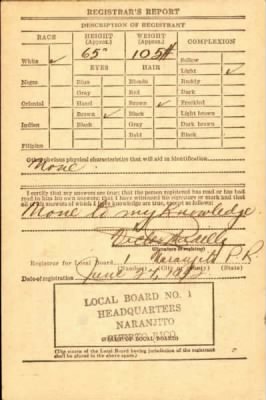 REGISTRAR'S REPORT
DESCRIPTION OF REGISTRANT
RACE HEIGHT (Approx.) WEIGHT (Approx.) COMPLEXION
White ✓ 65" 105# Sallow
EYES HAIR Light ✓
Negro Blue Blonde Ruddy
Gray Red Dark
Oriental Hazel Brown ✓ Freckled
Brown ✓ Black Light brown
Indian Black Gray Dark brown
Bald Black
Filipino
Other obvious physical characteristics that will aid in identification
None
I certify that my answers are true; that the person registered has read or has had read to him his own answers; that I have witnessed his signature or mark and that all of his answers of which I have knowledge are true, except as follows:
None to my knowledge
(Signature of registrar)
Registrar for Local Board 1 Naranjito P.R.
(Number) (City or county) (State)
Date of registration June
LOCAL BOARD NO. 1
HEADQUARTERS
NARANJITO
PUERTO RICO
(STAMP OF LOCAL BOARD)
(The stamp of the Local Board having jurisdiction of the registrant shall be placed in the above space.)